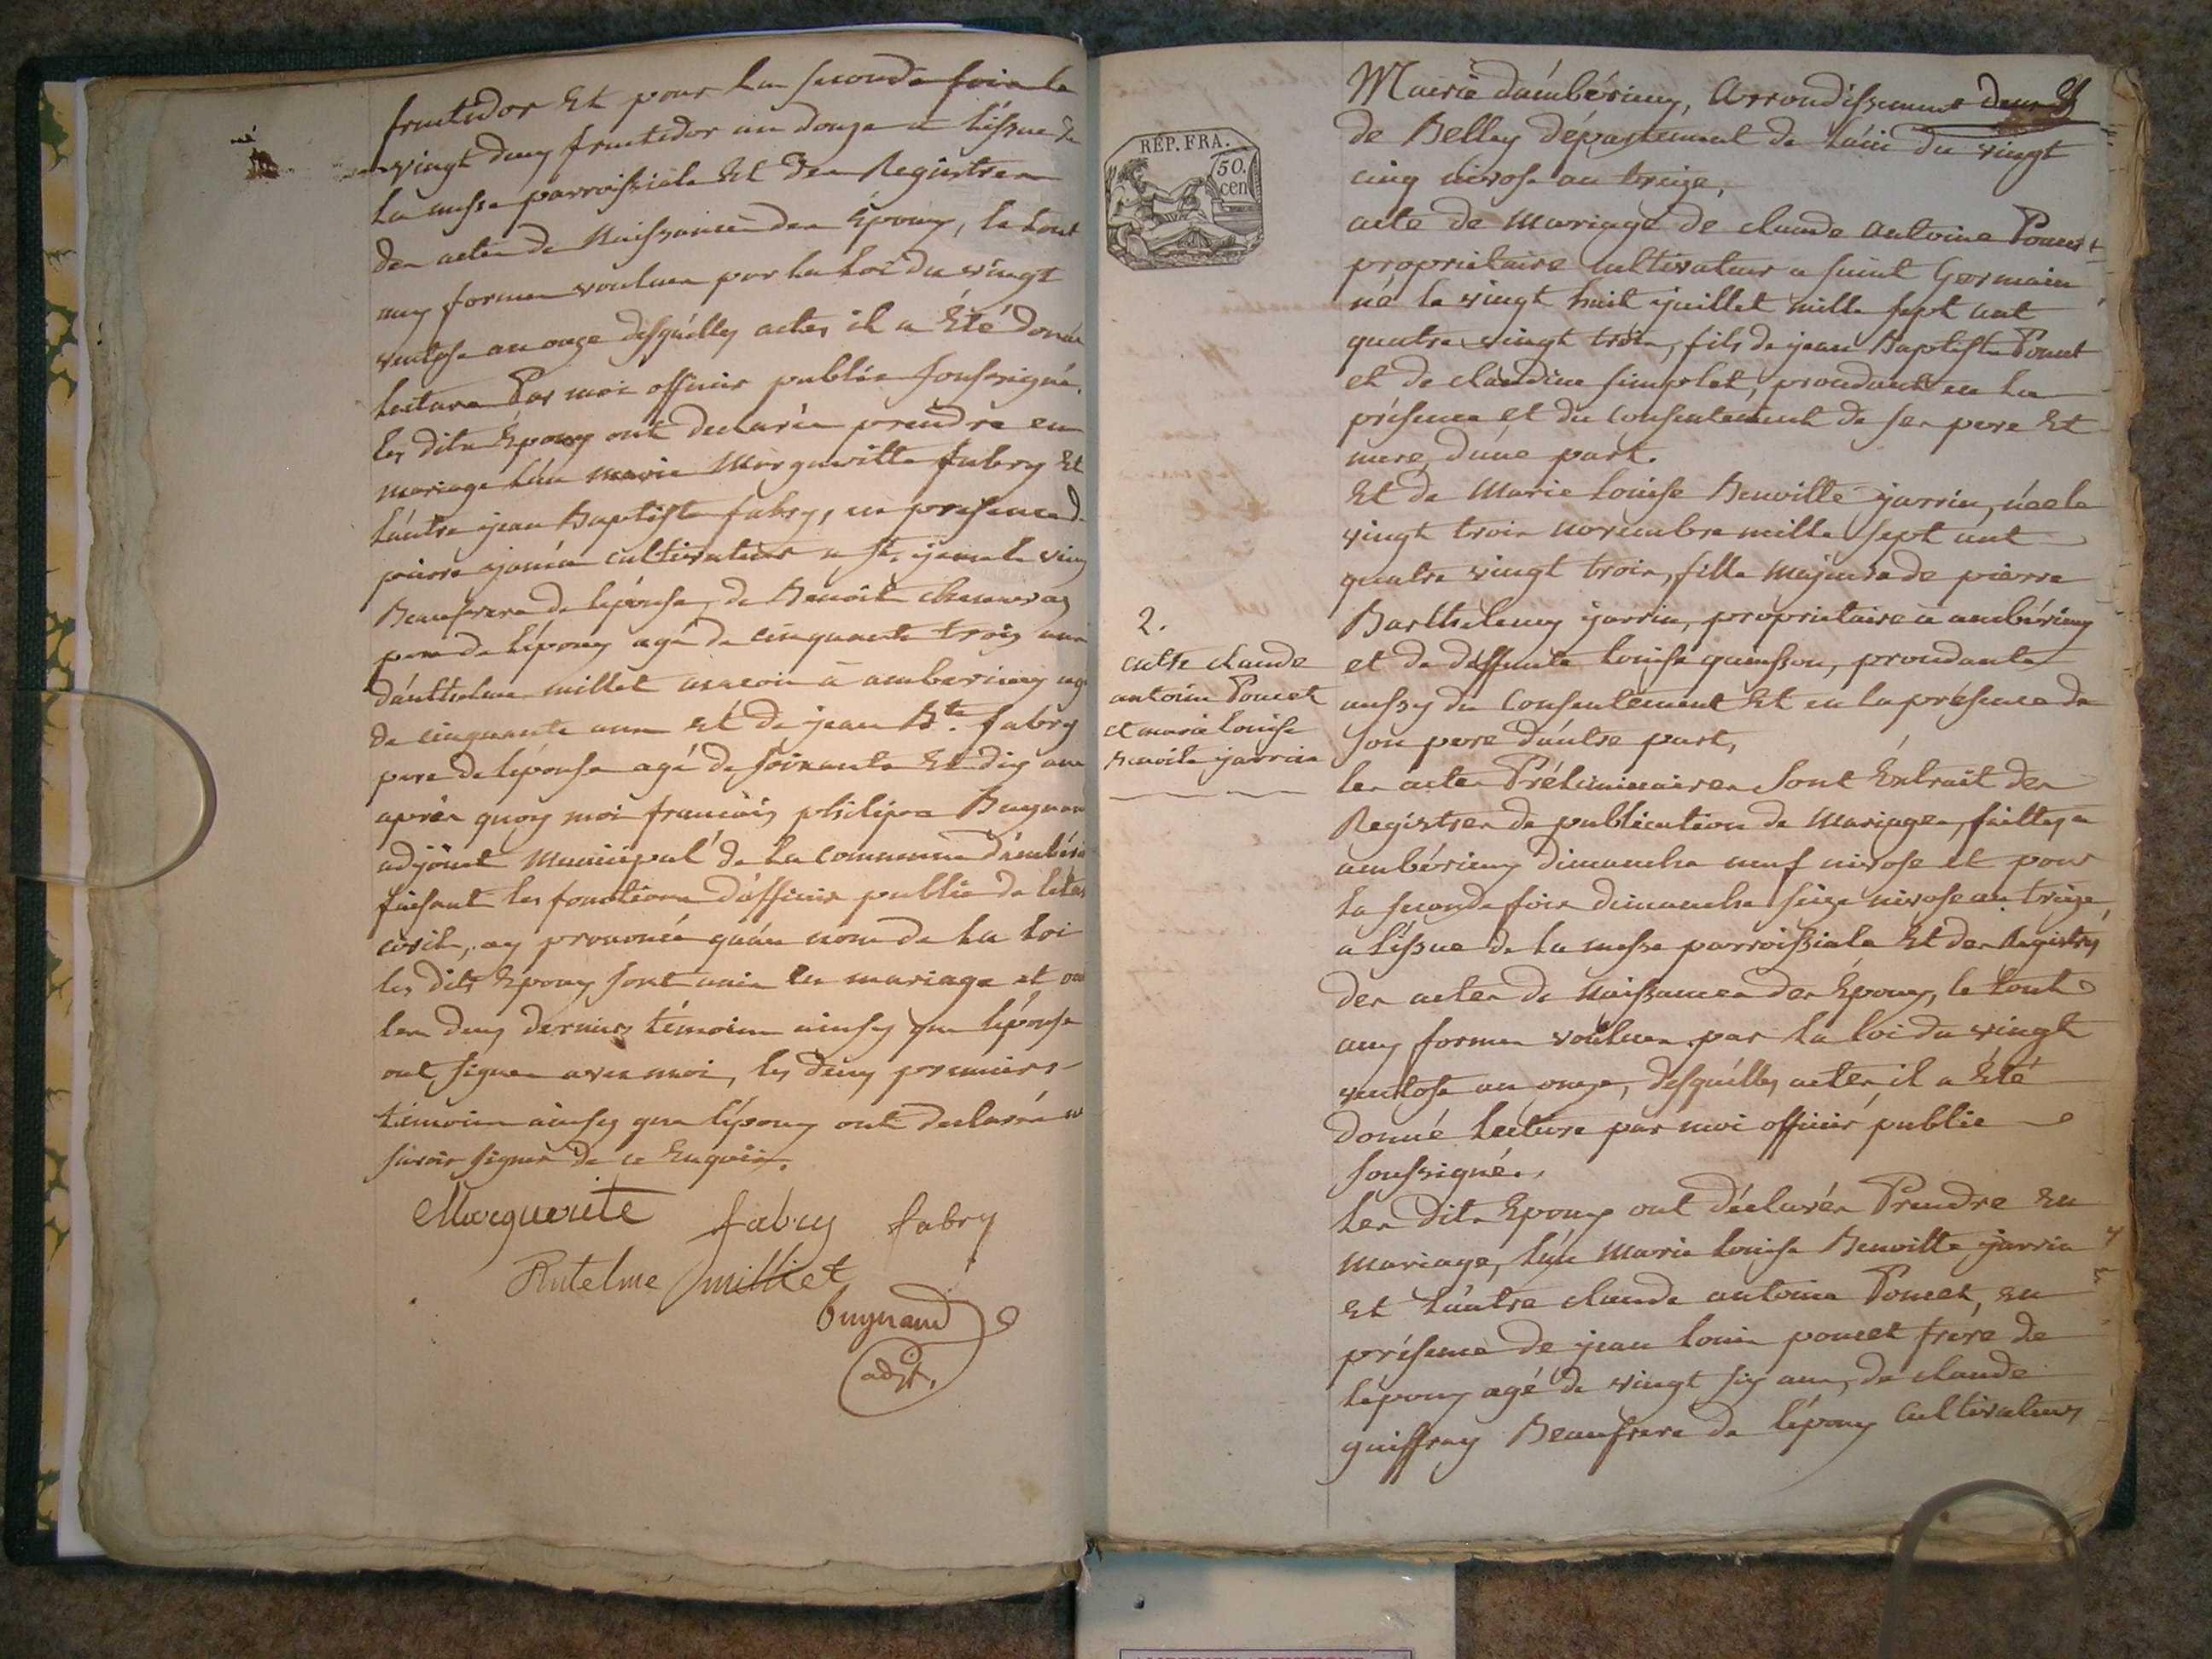 fructidor Et pour La seconde fois le
vingt deux fructidor an douze a L'issue de
La messe parroissiale Et des Registres
des actes de Naissance des Époux, le tout
aux formes voulues par La Loi du vingt
ventose an onze desquelles actes il a Été donné
Lecture Par moi officier public soussigné,
les dits Époux ont declarés prendre en
mariage L'un marie Marguerite fabry Et
L'autre jean Baptiste
pierre cultivateur a St. jean le vieux
Beaufrere de L'épouse, de Benoit
pere de L'époux agé de cinquante trois ans
d'anthelme millet maçon à amberieux agé
de cinquante ans et de jean Bte. fabry
pere de L'épouse agé de soixante Et dix ans
après quoy moi françois philipe Bugnand
adjoint Municipal de La commune d'ambérieux
faisant les fonctions d'officier public de l'état
civil, ay prononcé qu'au nom de La Loi
les dits Époux sont unis en mariage et ont
les deux derniers témoins ainsy que L'épouse
ont signés avec moi, les deux premiers
témoins ainsy que L'époux ont declarés ne
savoir signer de ce Enquis.
Marguerite fabry fabry
Antelme milliet
bugnand
adjt.
RÉP. FRA.
50.
cen
Mairie d'ambérieux, Arrondissement
de Belley département de L'ain du vingt
cinq nivose an treize,
acte de mariage de claude antoine Poncet
propriétaire cultivateur a saint Germain
né le vingt huit juillet mille sept cent
quatre vingt trois, fils de jean Baptiste Poncet
et de claudine simplet, procédant en La
présence et du consentement de ses pere Et
mere, d'une part.
Et de Marie Louise Benoitte jarrin, née le
vingt trois novembre mille sept cent
quatre vingt trois, fille majeure de pierre
Barthelemy jarrin, proprietaire a ambérieux
et de deffunte Louise, procedante
aussy du consentement Et en la présence de
son pere d'autre part,
les actes Préliminaires sont Extrait des
Registres de publication de Mariages, faittes a
ambérieux dimanche neuf nivose et pour
La seconde fois dimanche seize nivose an treize,
a L'issue de La messe parroissiale Et des Registres
des actes de Naissances des Époux, le tout
aux formes voulues par La loi du vingt
ventose an onze, desquelles actes, il a Été
donné Lecture par moi officier public
soussigné.
Les dits Epoux ont déclarés Prendre En
mariage, L'un Marie Louise Benoitte jarrin
Et L'autre claude antoine Poncet, en
présence de jean Louis poncet frere de
L'époux agé de vingt six ans, de claude
guiffray Beaufrere de L'époux cultivateur
2.
entre claude
antoine Poncet
et marie Louise
benoite jarrin